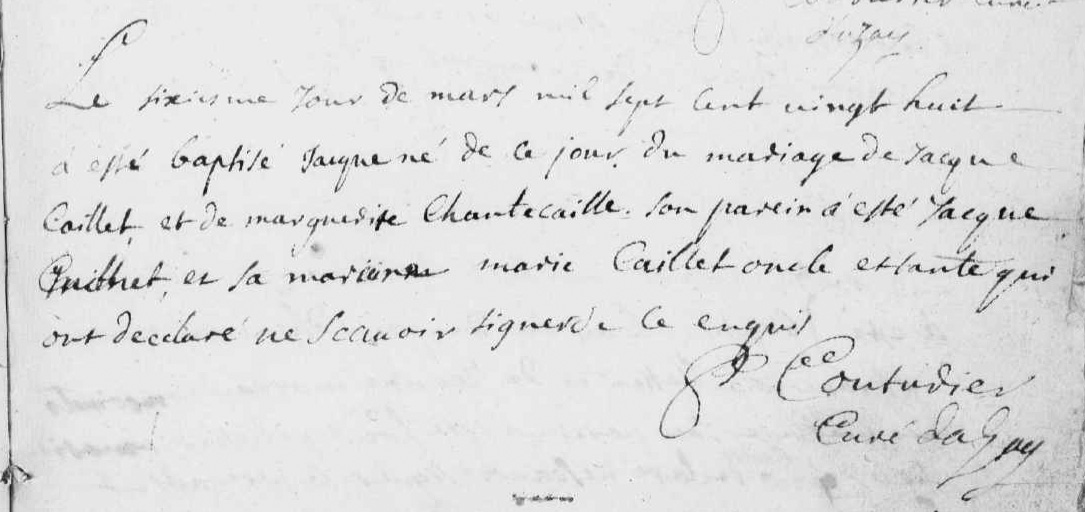 Le sixiesme jour de mars mil sept cent vingt huit
a esté baptisé Jacque né de ce jour du mariage de Jacque
Caillet et de marguerite Chantecaille. son parein a esté Jacque
et sa maraine marie Caillet oncle et tante qui
ont declaré ne scavoir signer de ce enquis
Couturier
Curé